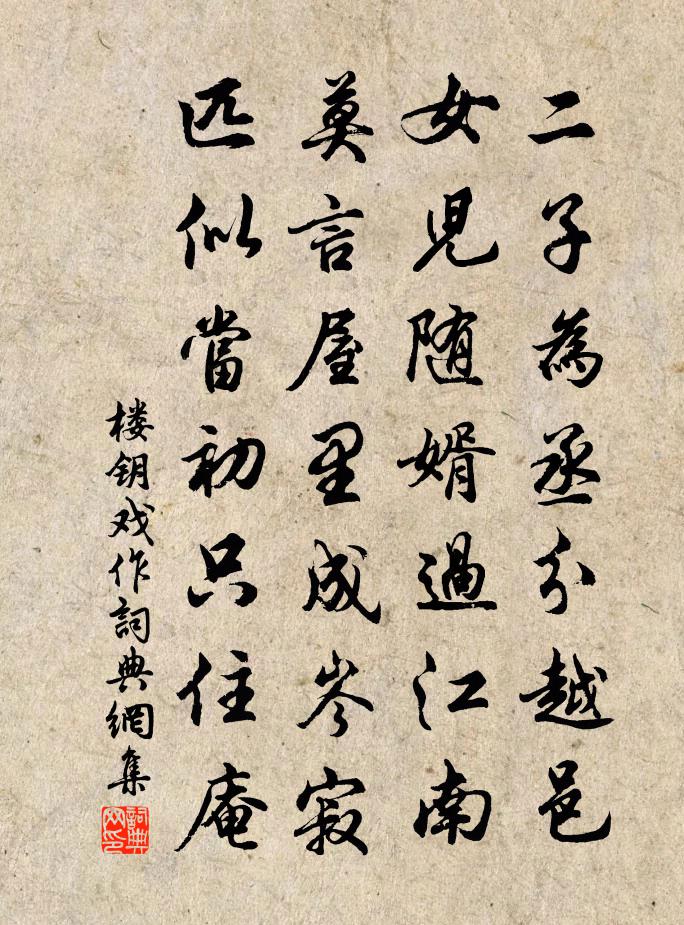 二子為丞分越邑
女兒随婿過江南
莫言屋里成岑寂
匹似當初只住庵
楼钥戏作詞典網集
詞典网印